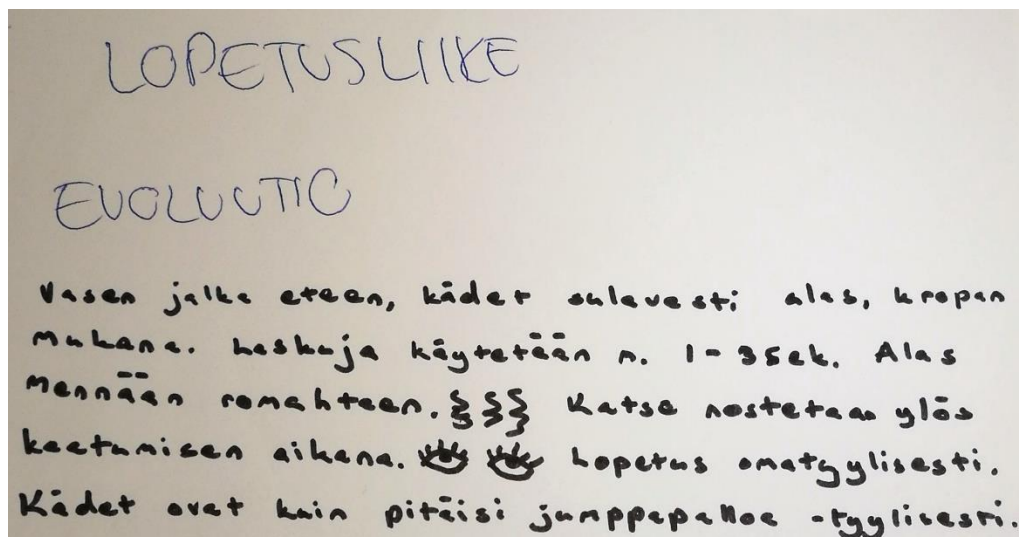 LOPETUSLIIKE
EVOLUUTIO
Vasen jalka eteen, kädet sulavesti alas, kropan
mukana. Laskuja käytetään n. 1-3sek. Alas
mennään romahteen. Katse nostetaan ylös
kaatumisen aikana. Lopetus omatyylisesti.
Kädet ovat kuin pitäisi jumppapalloa -tyylisesti.